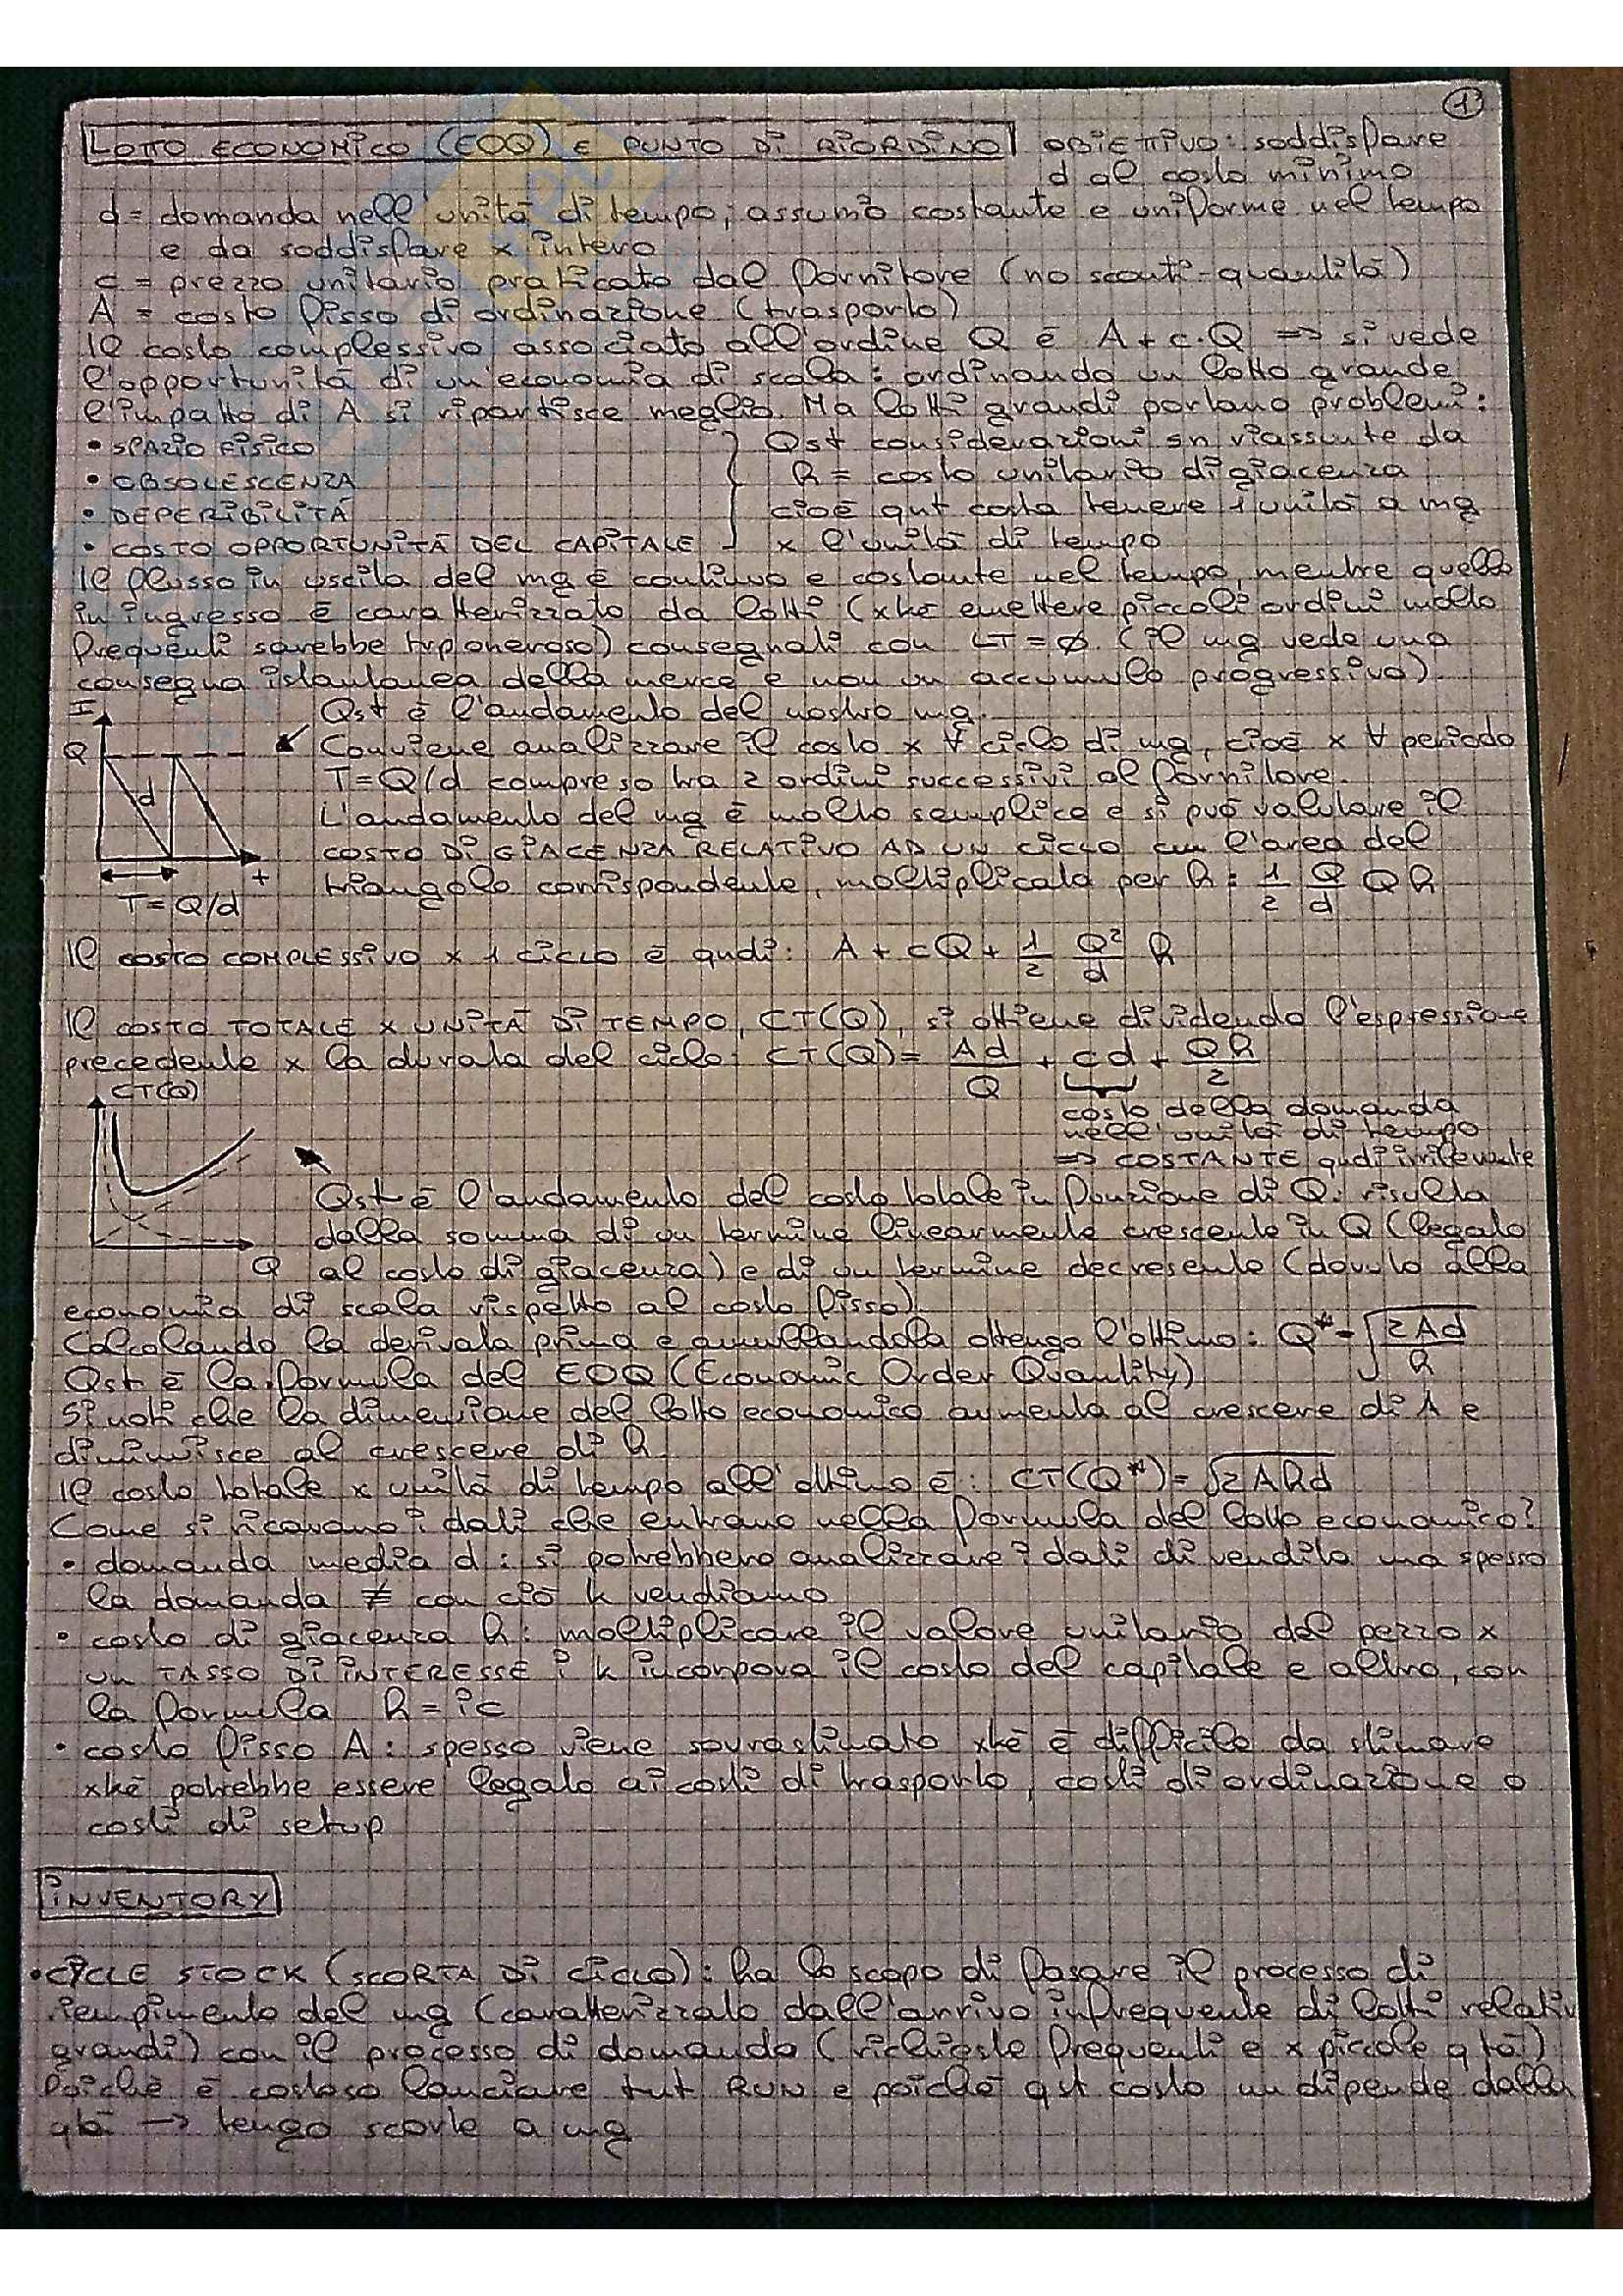 1
LOTTO ECONOMICO (EOQ) E PUNTO DI RIORDINO OBIETTIVO: soddisfare
d al costo minimo
d = domanda nell'unità di tempo; assumo costante e uniforme nel tempo
e da soddisfare x intero
c = prezzo unitario praticato dal fornitore (no sconti-quantità)
A = costo fisso di ordinazione (trasporto)
Il costo complessivo associato all'ordine Q è A + c·Q => si vede
l'opportunità di un'economia di scala: ordinando un lotto grande
l'impatto di A si ripartisce meglio. Ma lotti grandi portano problemi:
• SPAZIO FISICO
• OBSOLESCENZA
• DEPERIBILITÀ
• COSTO OPPORTUNITÀ DEL CAPITALE
Qst considerazioni sn riassunte da
h = costo unitario di giacenza
cioè qnt costa tenere 1 unità a mg
x l'unità di tempo
Il flusso in uscita del mg è continuo e costante nel tempo, mentre quello
in ingresso è caratterizzato da lotti (xké emettere piccoli ordini molto
frequenti sarebbe trp oneroso) consegnati con LT = ø. (il mg vede una
consegna istantanea della merce e non un accumulo progressivo).
I
Q
d
t
T = Q/d
Qst è l'andamento del nostro mg.
Conviene analizzare il costo x ∀ ciclo di mg, cioè x ∀ periodo
T=Q/d compreso tra 2 ordini successivi al fornitore.
L'andamento del mg è molto semplice e si può valutare il
COSTO DI GIACENZA RELATIVO AD UN CICLO cn l'area del
triangolo corrispondente, moltiplicata per h: 1/2 Q/d Q h
Il COSTO COMPLESSIVO x 1 CICLO è qndi: A + cQ + 1/2 Q²/d h
Il COSTO TOTALE x UNITÀ DI TEMPO, CT(Q), si ottiene dividendo l'espressione
precedente x la durata del ciclo: CT(Q) = Ad/Q + cd + Qh/2
costo della domanda
nell'unità di tempo
=> COSTANTE qndi irrilevante
CT(Q)
Q
Qst è l'andamento del costo totale in funzione di Q: risulta
dalla somma di un termine linearmente crescente in Q (legato
al costo di giacenza) e di un termine decresente (dovuto alla
economia di scala rispetto al costo fisso).
Calcolando la derivata prima e annullandola ottengo l'ottimo: Q* = √(2Ad/h)
Qst è la formula del EOQ (Economic Order Quantity)
Si noti che la dimensione del lotto economico aumenta al crescere di A e
diminuisce al crescere di h.
Il costo totale x unità di tempo all'ottimo è: CT(Q*) = √2Ahd
Come si ricavano i dati che entrano nella formula del lotto economico?
• domanda media d: si potrebbero analizzare i dati di vendita ma spesso
la domanda ≠ con ciò k vendiamo
• costo di giacenza h: moltiplicare il valore unitario del pezzo x
un TASSO DI INTERESSE i k incorpora il costo del capitale e altro, con
la formula h = ic
• costo fisso A: spesso viene sovrastimato xké è difficile da stimare
xké potrebbe essere legato ai costi di trasporto, costi di ordinazione o
costi di setup
INVENTORY
• CYCLE STOCK (SCORTA DI CICLO): ha lo scopo di fasare il processo di
riempimento del mg (caratterizzato dall'arrivo infrequente di lotti relativ
grandi) con il processo di domanda (richieste frequenti e x piccole qtà)
Poiché è costoso lanciare tnt RUN e poiché qst costo nn dipende dalla
qtà → tengo scorte a mg